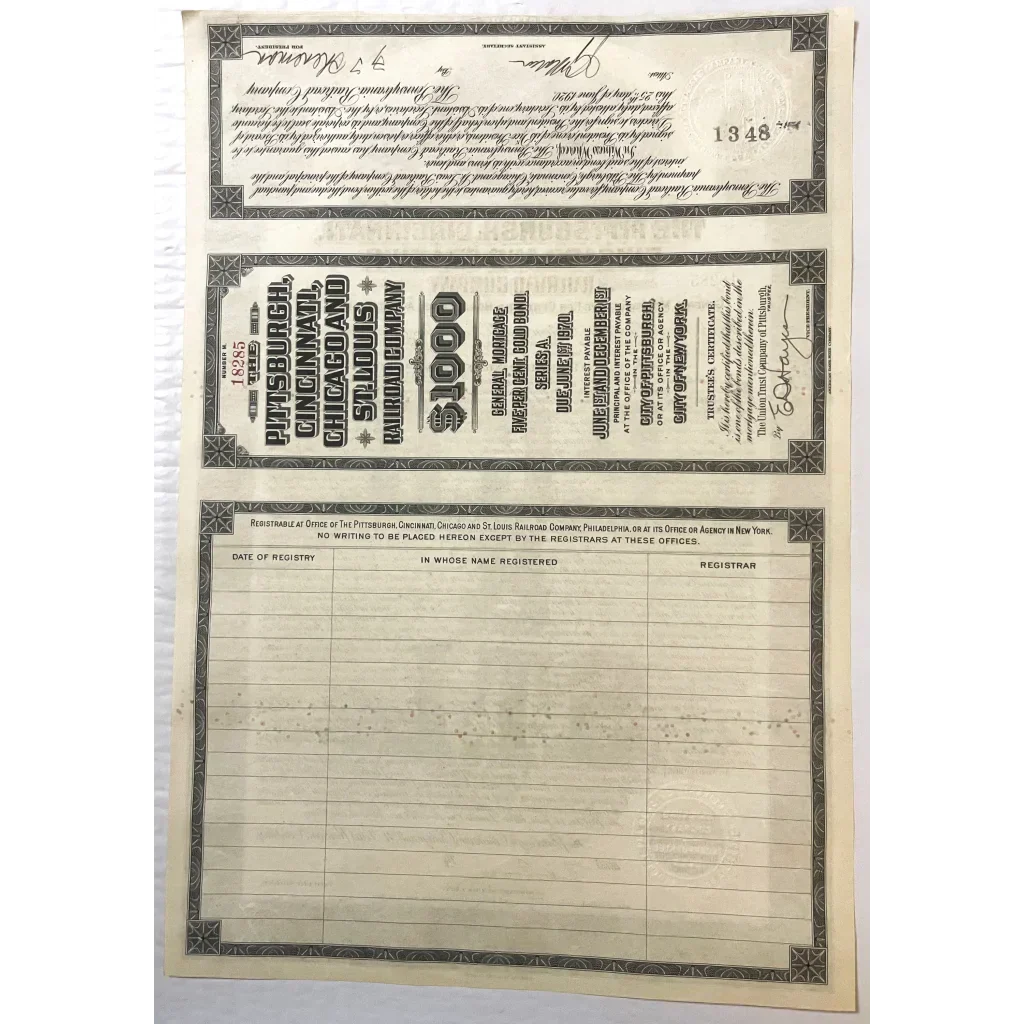 The Pennsylvania Railroad Company, for value received, hereby guarantees to the holder of the within bond the due and punctual
payment by The Pittsburgh, Cincinnati, Chicago and St. Louis Railroad Company of the principal and the
interest of the same in accordance with its terms and tenor.
In Witness Whereof, The Pennsylvania Railroad Company has caused this guarantee to be
signed by its President or one of its Vice Presidents, or other officer or person, thereunto duly authorized by its Board of
Directors to sign for the President and on behalf of said Company, and its corporate seal to be hereunto
affixed, duly attested by its Secretary, one of its Assistant Secretaries, or by the Assistant to the Secretary
this 25th day of June 1920.
The Pennsylvania Railroad Company
Attest:
By
ASSISTANT SECRETARY.
FOR PRESIDENT.
1348
NUMBER M.
18285
THE
PITTSBURGH,
CINCINNATI,
CHICAGO AND
ST. LOUIS
RAILROAD COMPANY
$1000
GENERAL MORTGAGE
FIVE PER CENT. GOLD BOND.
SERIES A.
DUE JUNE 1ST 1970.
INTEREST PAYABLE
JUNE 1ST AND DECEMBER 1ST
PRINCIPAL AND INTEREST PAYABLE
AT THE OFFICE OF THE COMPANY
IN THE
CITY OF PITTSBURGH,
OR AT ITS OFFICE OR AGENCY
IN THE
CITY OF NEW YORK.
TRUSTEE'S CERTIFICATE.
It is hereby certified that this bond
is one of the bonds described in the
mortgage mentioned therein.
The Union Trust Company of Pittsburgh,
TRUSTEE,
By
VICE-PRESIDENT.
AMERICAN BANK NOTE COMPANY.
REGISTRABLE AT OFFICE OF THE PITTSBURGH, CINCINNATI, CHICAGO AND ST. LOUIS RAILROAD COMPANY, PHILADELPHIA, OR AT ITS OFFICE OR AGENCY IN NEW YORK.
NO WRITING TO BE PLACED HEREON EXCEPT BY THE REGISTRARS AT THESE OFFICES.
DATE OF REGISTRY
IN WHOSE NAME REGISTERED
REGISTRAR